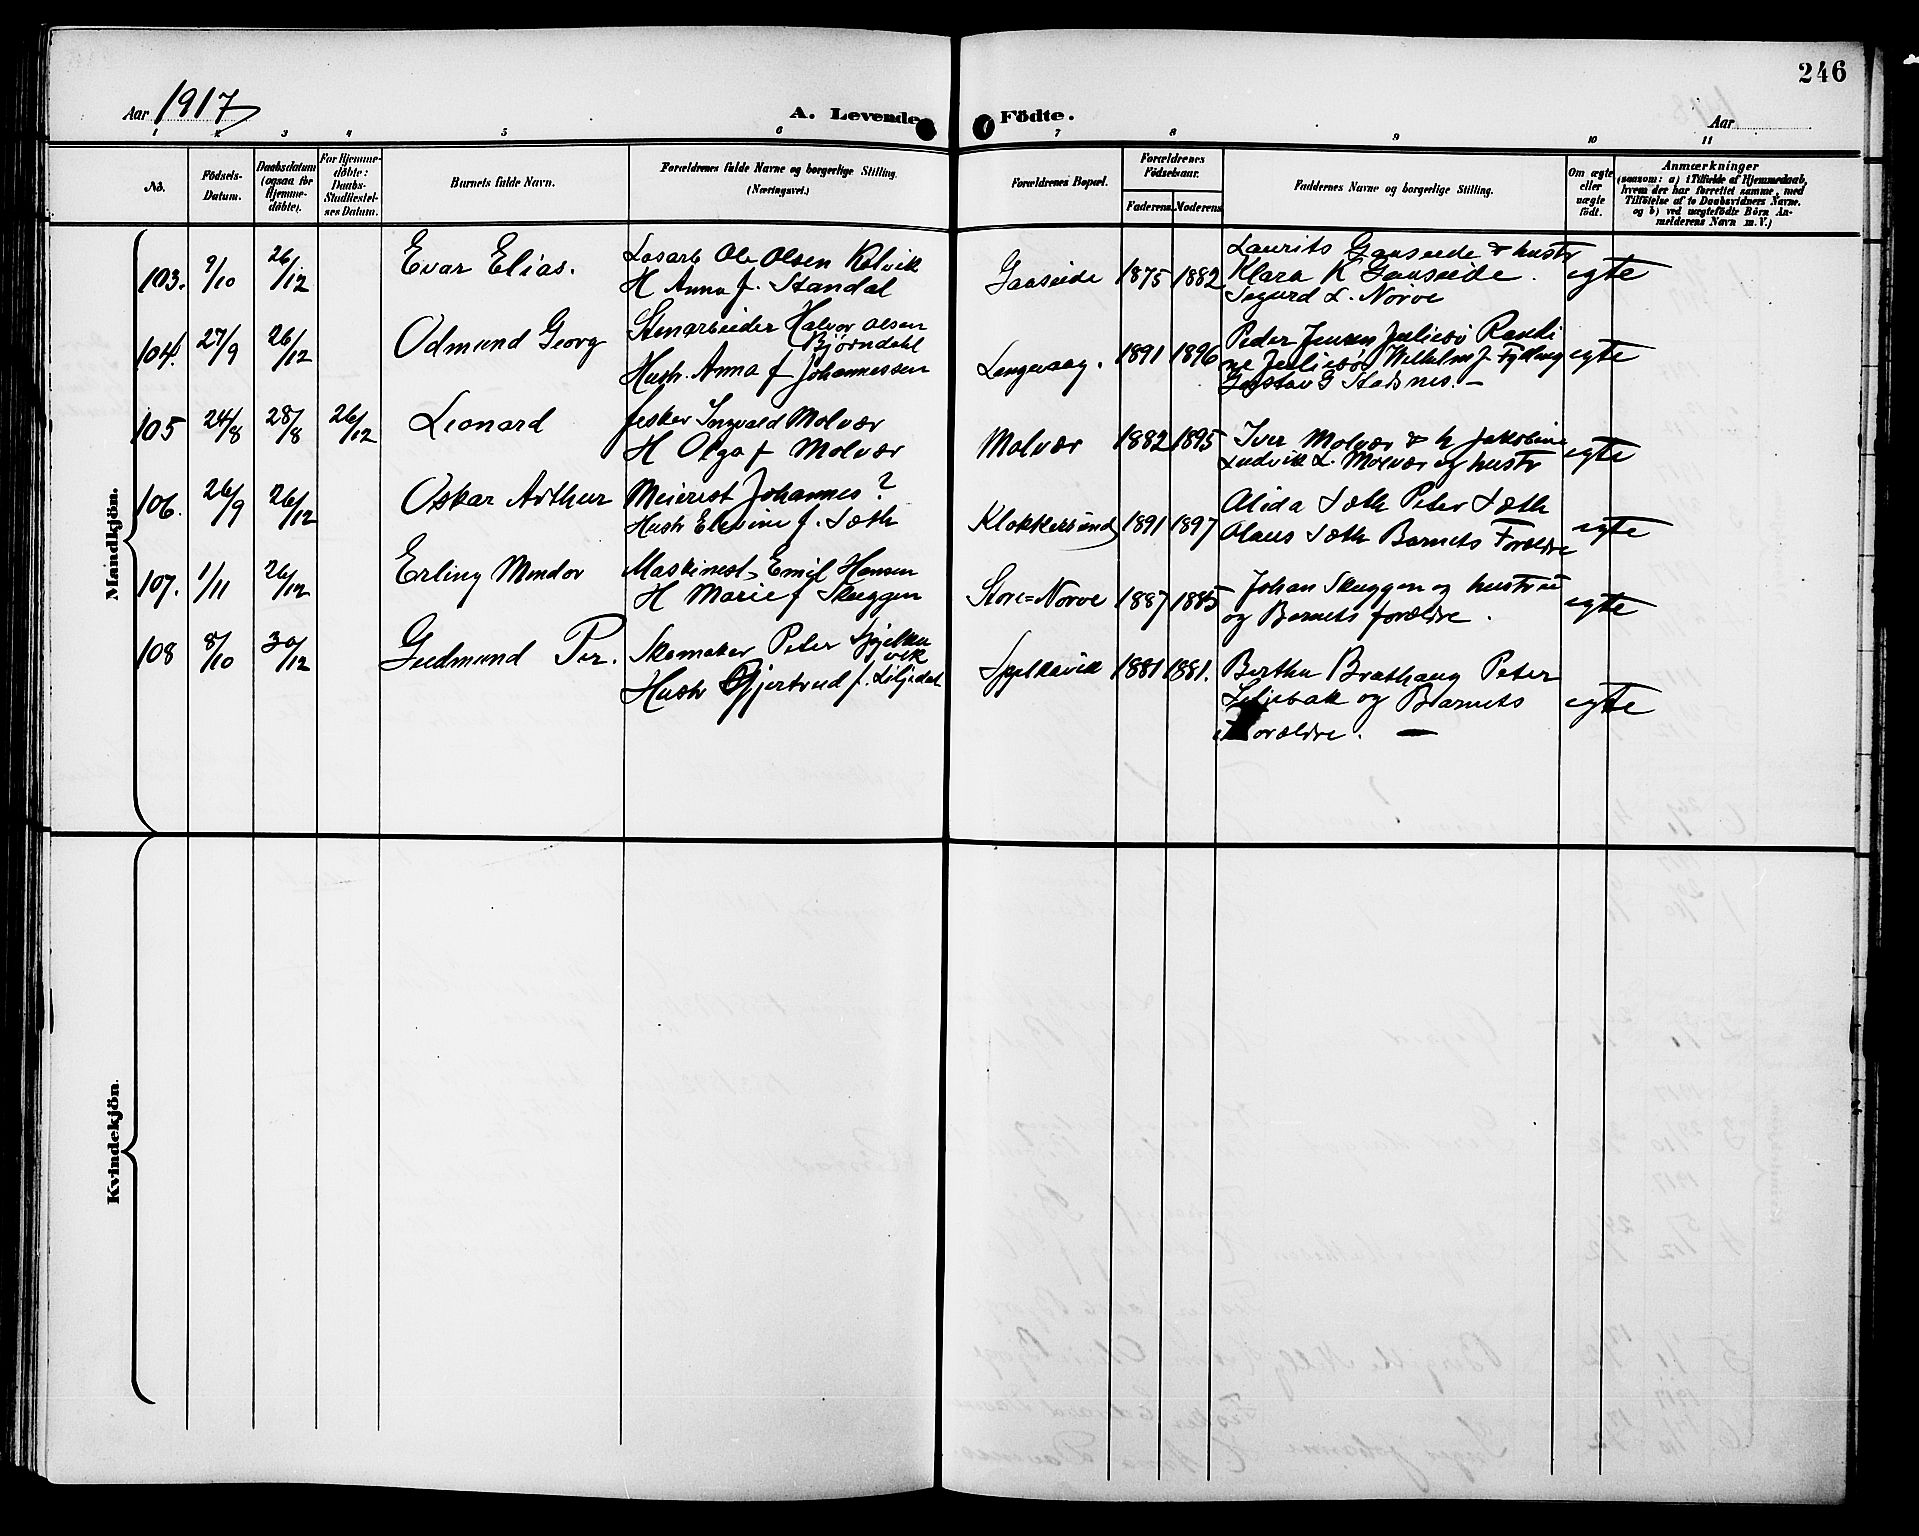 246
Aar 1917
A. Levende Födte.
Aar
1 2 3 4 5 6 7 8 9 10 11
No.
Födsels-Datum.
Daabsdatum (ogsaa for Hjemme-döbte).
For Hjemme-döbte: Daabs-Stadfæstel-ses Datum.
Barnets fulde Navn.
Forældrenes fulde Navne og borgerlige Stilling. (Næringsvei.)
Forældrenes Bopæl.
Forældrenes Födselsaar.
Faderens. Moderens.
Faddernes Navne og borgerlige Stilling.
Om ægte eller uægte födt.
Anmærkninger
(saasom: a) i Tilfælde af Hjemmedaab, hvem der har forrettet samme, med Tilföielse af to Daabsvidners Navne. og b) ved uægtefödte Börn An-melderens Navn m. V.)
Mandkjön.
103. 9/10 26/12 Evar Elias. Losarb Ole Olsen Kolvik
H Anna f. Standal
Gaaseide 1875 1882 Laurits Gaaseide & hustr
Klara K Gaaseide.
Sigurd L. Nörve
egte
104. 27/9 26/12 Odmund Georg Stenarbeider Halvor Olsen
Bjørndahl
Hustr. Anna f Johannessen
Langevaag. 1891 1896 Peder Jensen
Gustav G Stadsnes. –
egte
105 24/8 28/8 26/12 Leonard fisker Ingvald Molvær
H Olga f Molvær
Molvær 1882 1895 Iver Molvær & h Jakobine
Ludvik L. Molvær og hustr
egte
106. 26/9 26/12 Oskar Arthur Meierist Johannes ?
Hustr Elevine f. Sæth
Klokkersund 1891 1897 Alida Sæth Peter Sæth
Olaus Sæth Barnets Forældre
egte
107. 1/11 26/12 Erling Mindor Maskinest. Emil Hansen
H Marie f Skuggen
Store=Nørve 1887 1885 Johan Skuggen og hustru
og Barnets forældre.
egte
108 8/10 30/12 Gudmund Per. Skomaker Peter Spjelka
vik
Hustr Gjertrud f. Liljedal
Spjelkavik 1881 1881. Bertha Brathaug Peter
Liljebak og Barnets
Forældre. –
egte
Kvindekjön.